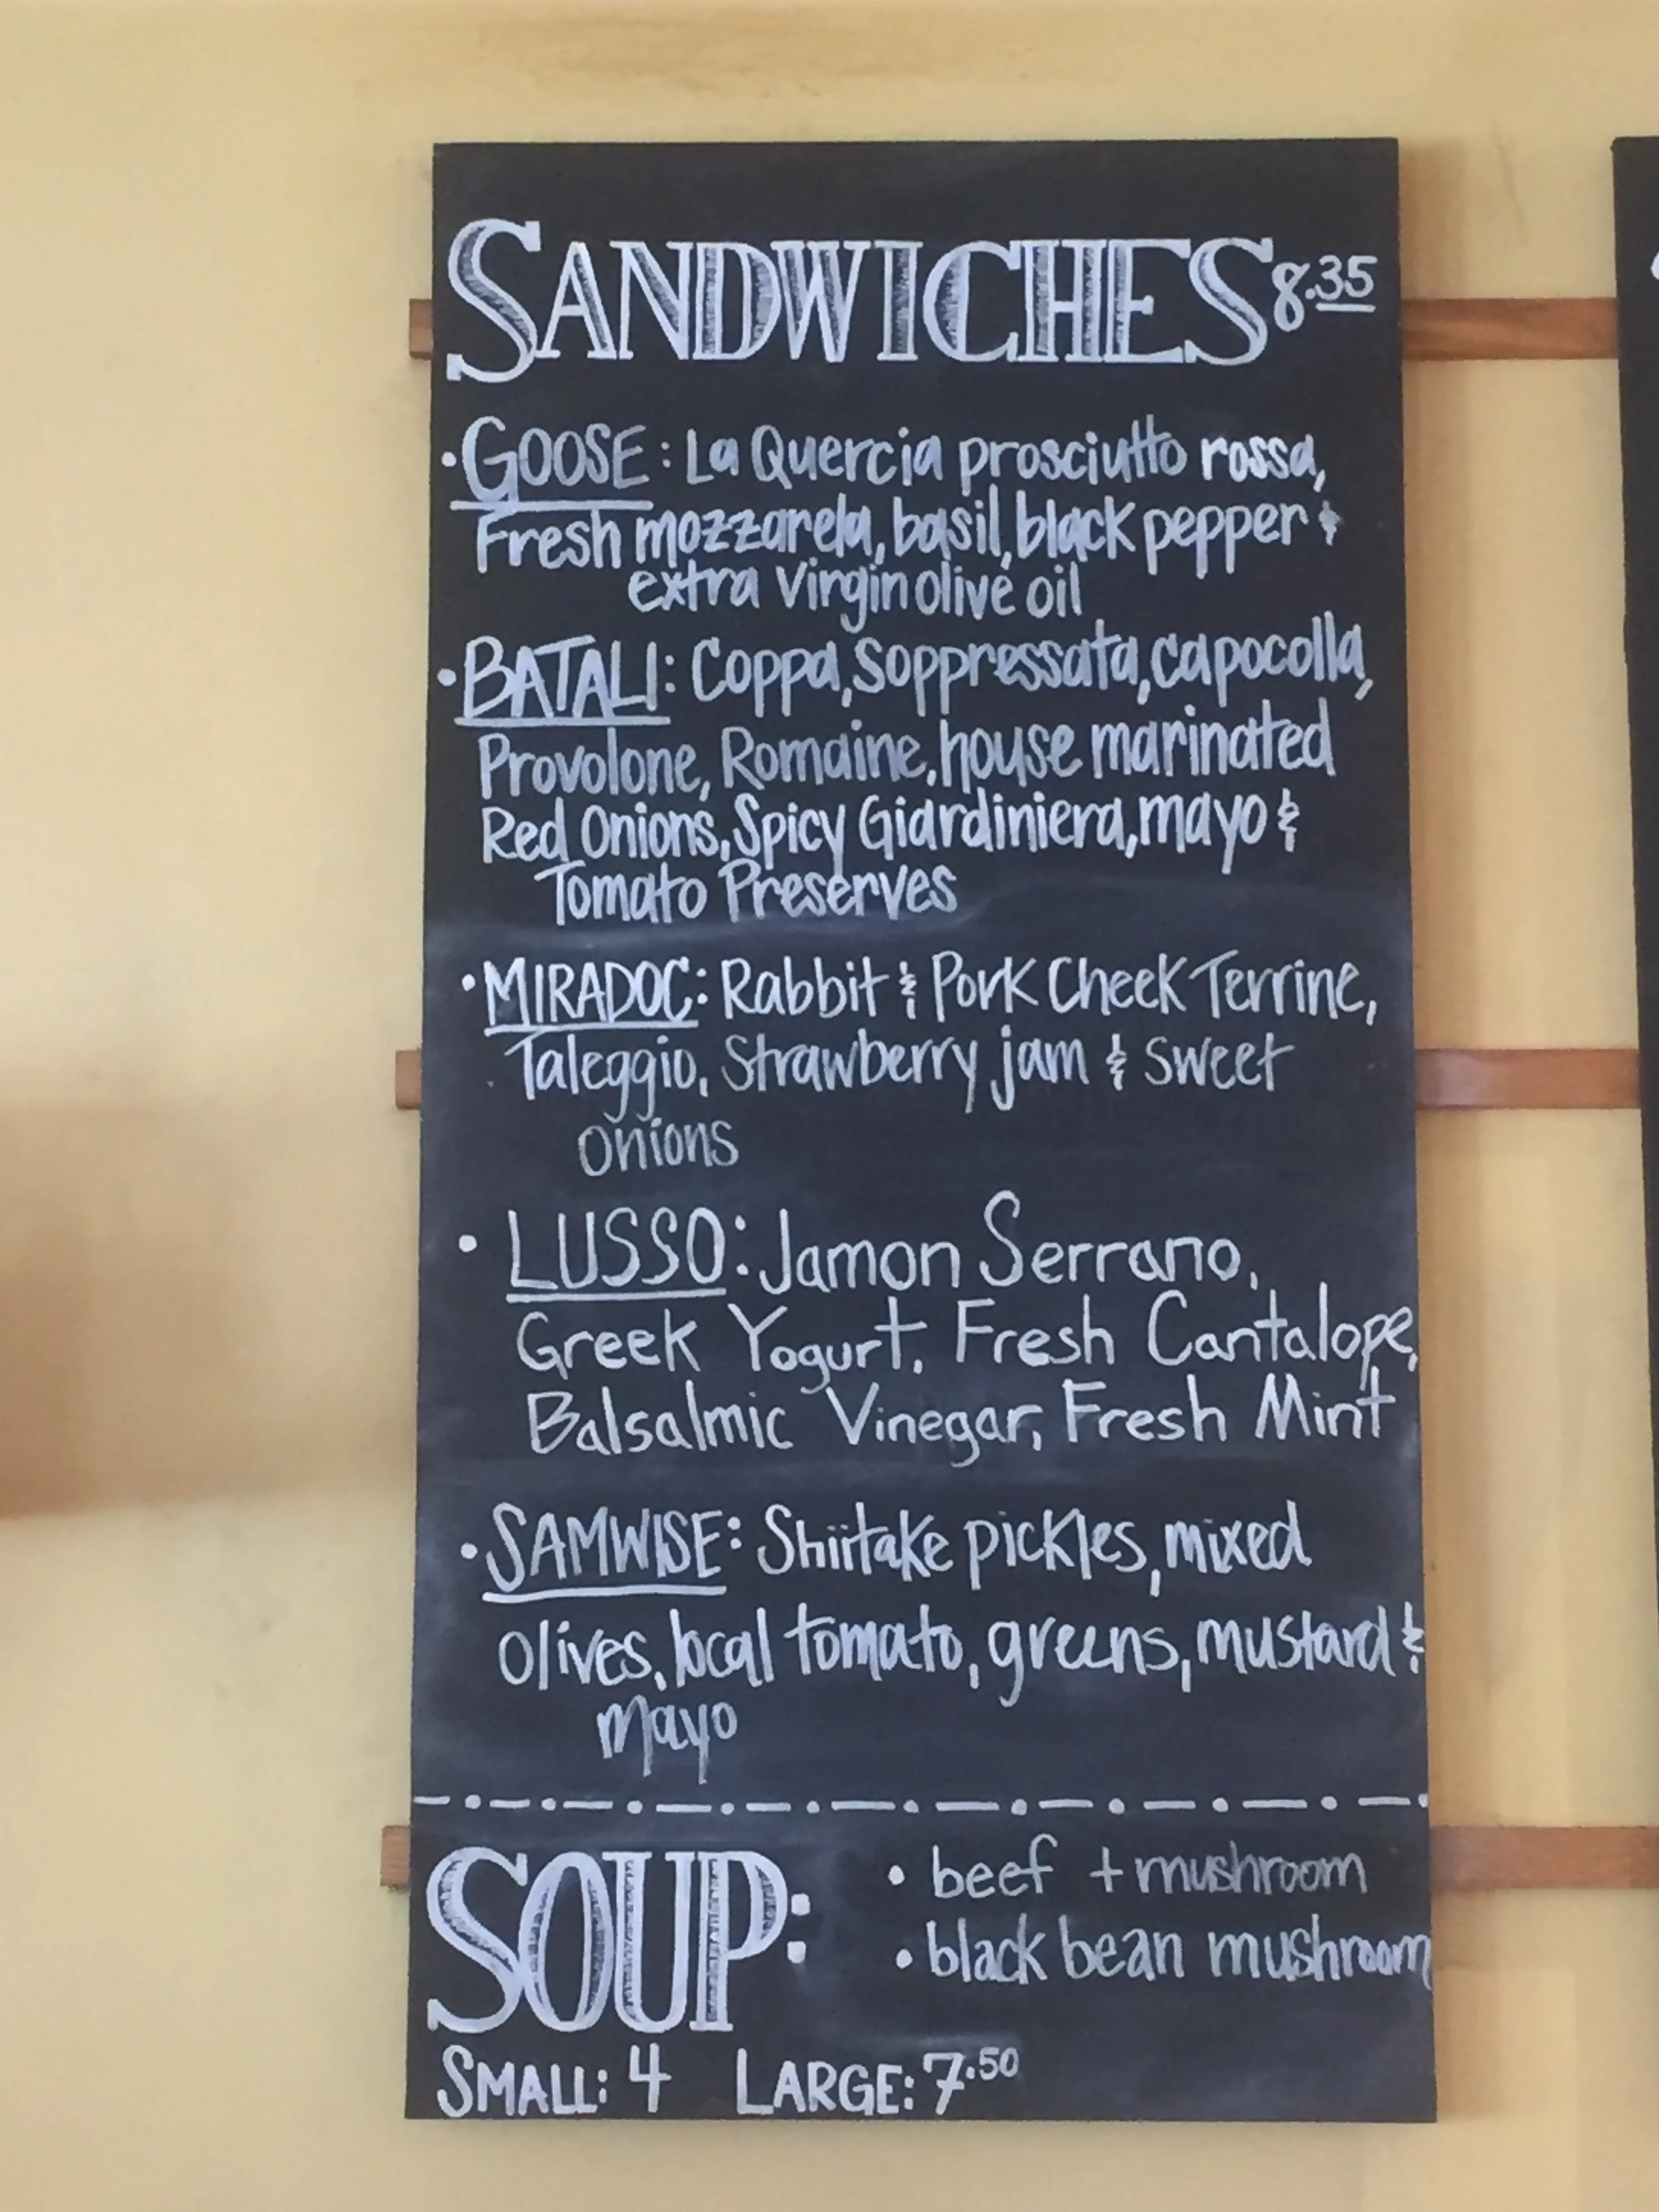 SANDWICHES 8.35
• GOOSE: La Quercia prosciutto rossa,
Fresh mozzarela, basil, black pepper &
extra Virgin olive oil
• BATALI: Coppa, Soppressata, capocolla,
Provolone, Romaine, house marinated
Red Onions, Spicy Giardiniera, mayo &
Tomato Preserves
• MIRADOC: Rabbit & Pork Cheek Terrine,
Taleggio, Strawberry jam & sweet
onions
• LUSSO: Jamon Serrano,
Greek Yogurt, Fresh Cantalope,
Balsalmic Vinegar, Fresh Mint
• SAMWISE: Shiitake pickles, mixed
olives, local tomato, greens, mustard &
mayo
SOUP:
• beef + mushroom
• black bean mushroom
SMALL: 4 LARGE: 7.50